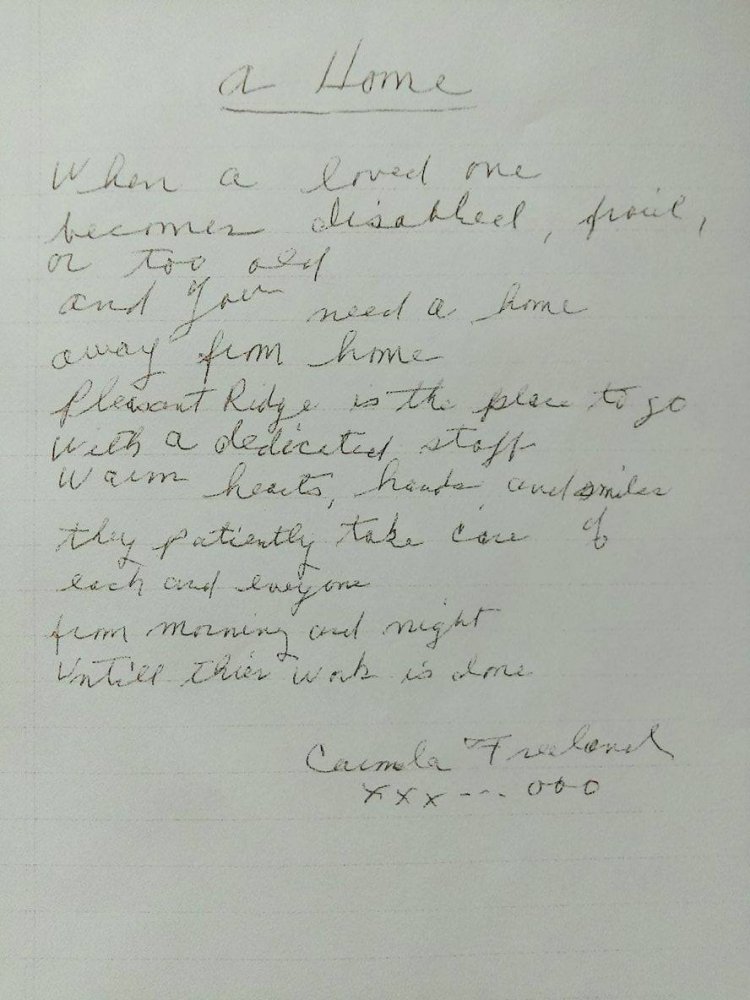 a Home
When a loved one
becomes disabled, frail,
or too old
and you need a home
away from home
Pleasant Ridge is the place to go
with a dedicated staff
Warm hearts, hands, and smiles
they patiently take care of
each and everyone
from morning and night
Untill thier work is done
Carmela Freeland
xxx --- ooo